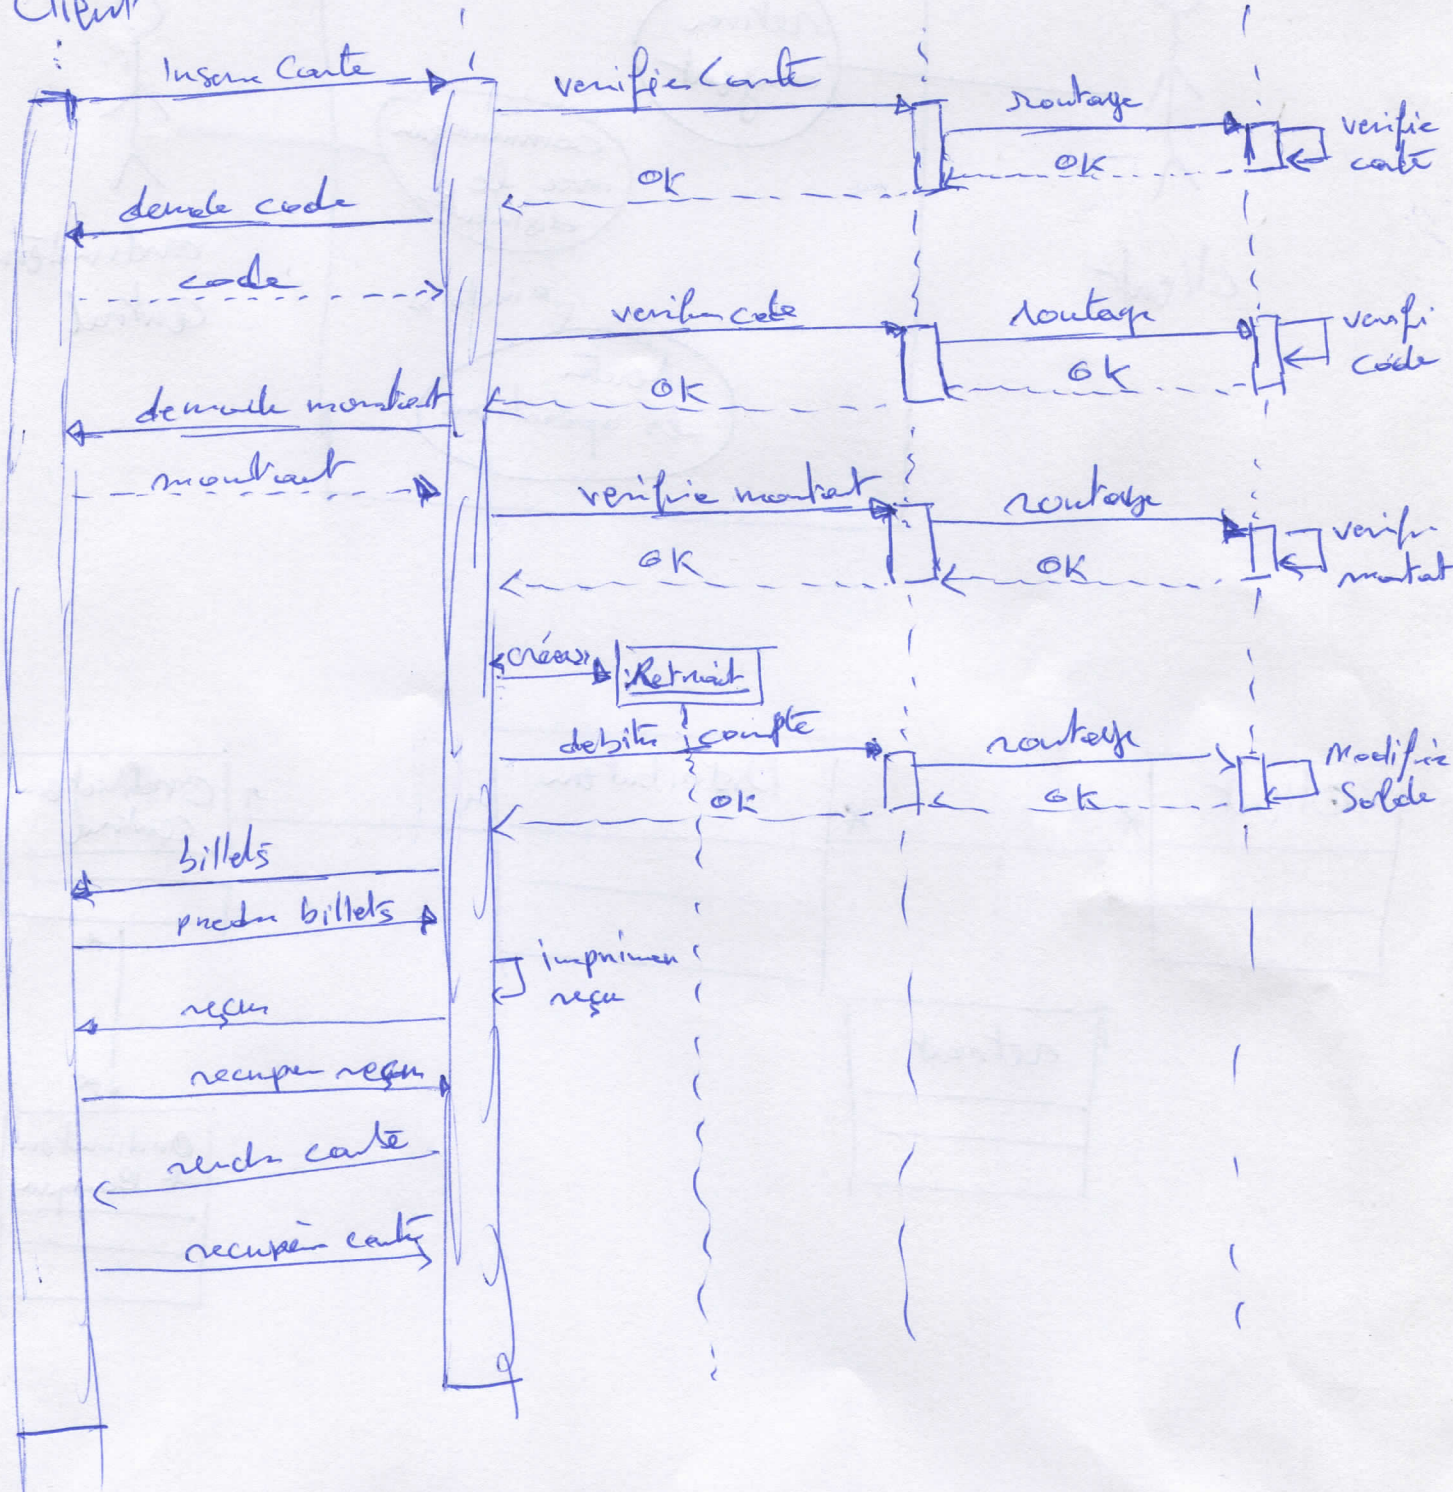 Client
Insere Carte
verifier Carte
routage
verifie
carte
OK
OK
demde code
code
verifier code
routage
verifi
code
OK
OK
demade montant
montant
verifie montant
routage
verifi
montat
OK
OK
«créer»
:Retrait
debiter compte
routage
Modifie
Solde
OK
OK
billets
predre billets
imprimer
reçu
reçu
recuper reçu
rendre carte
recupère carte